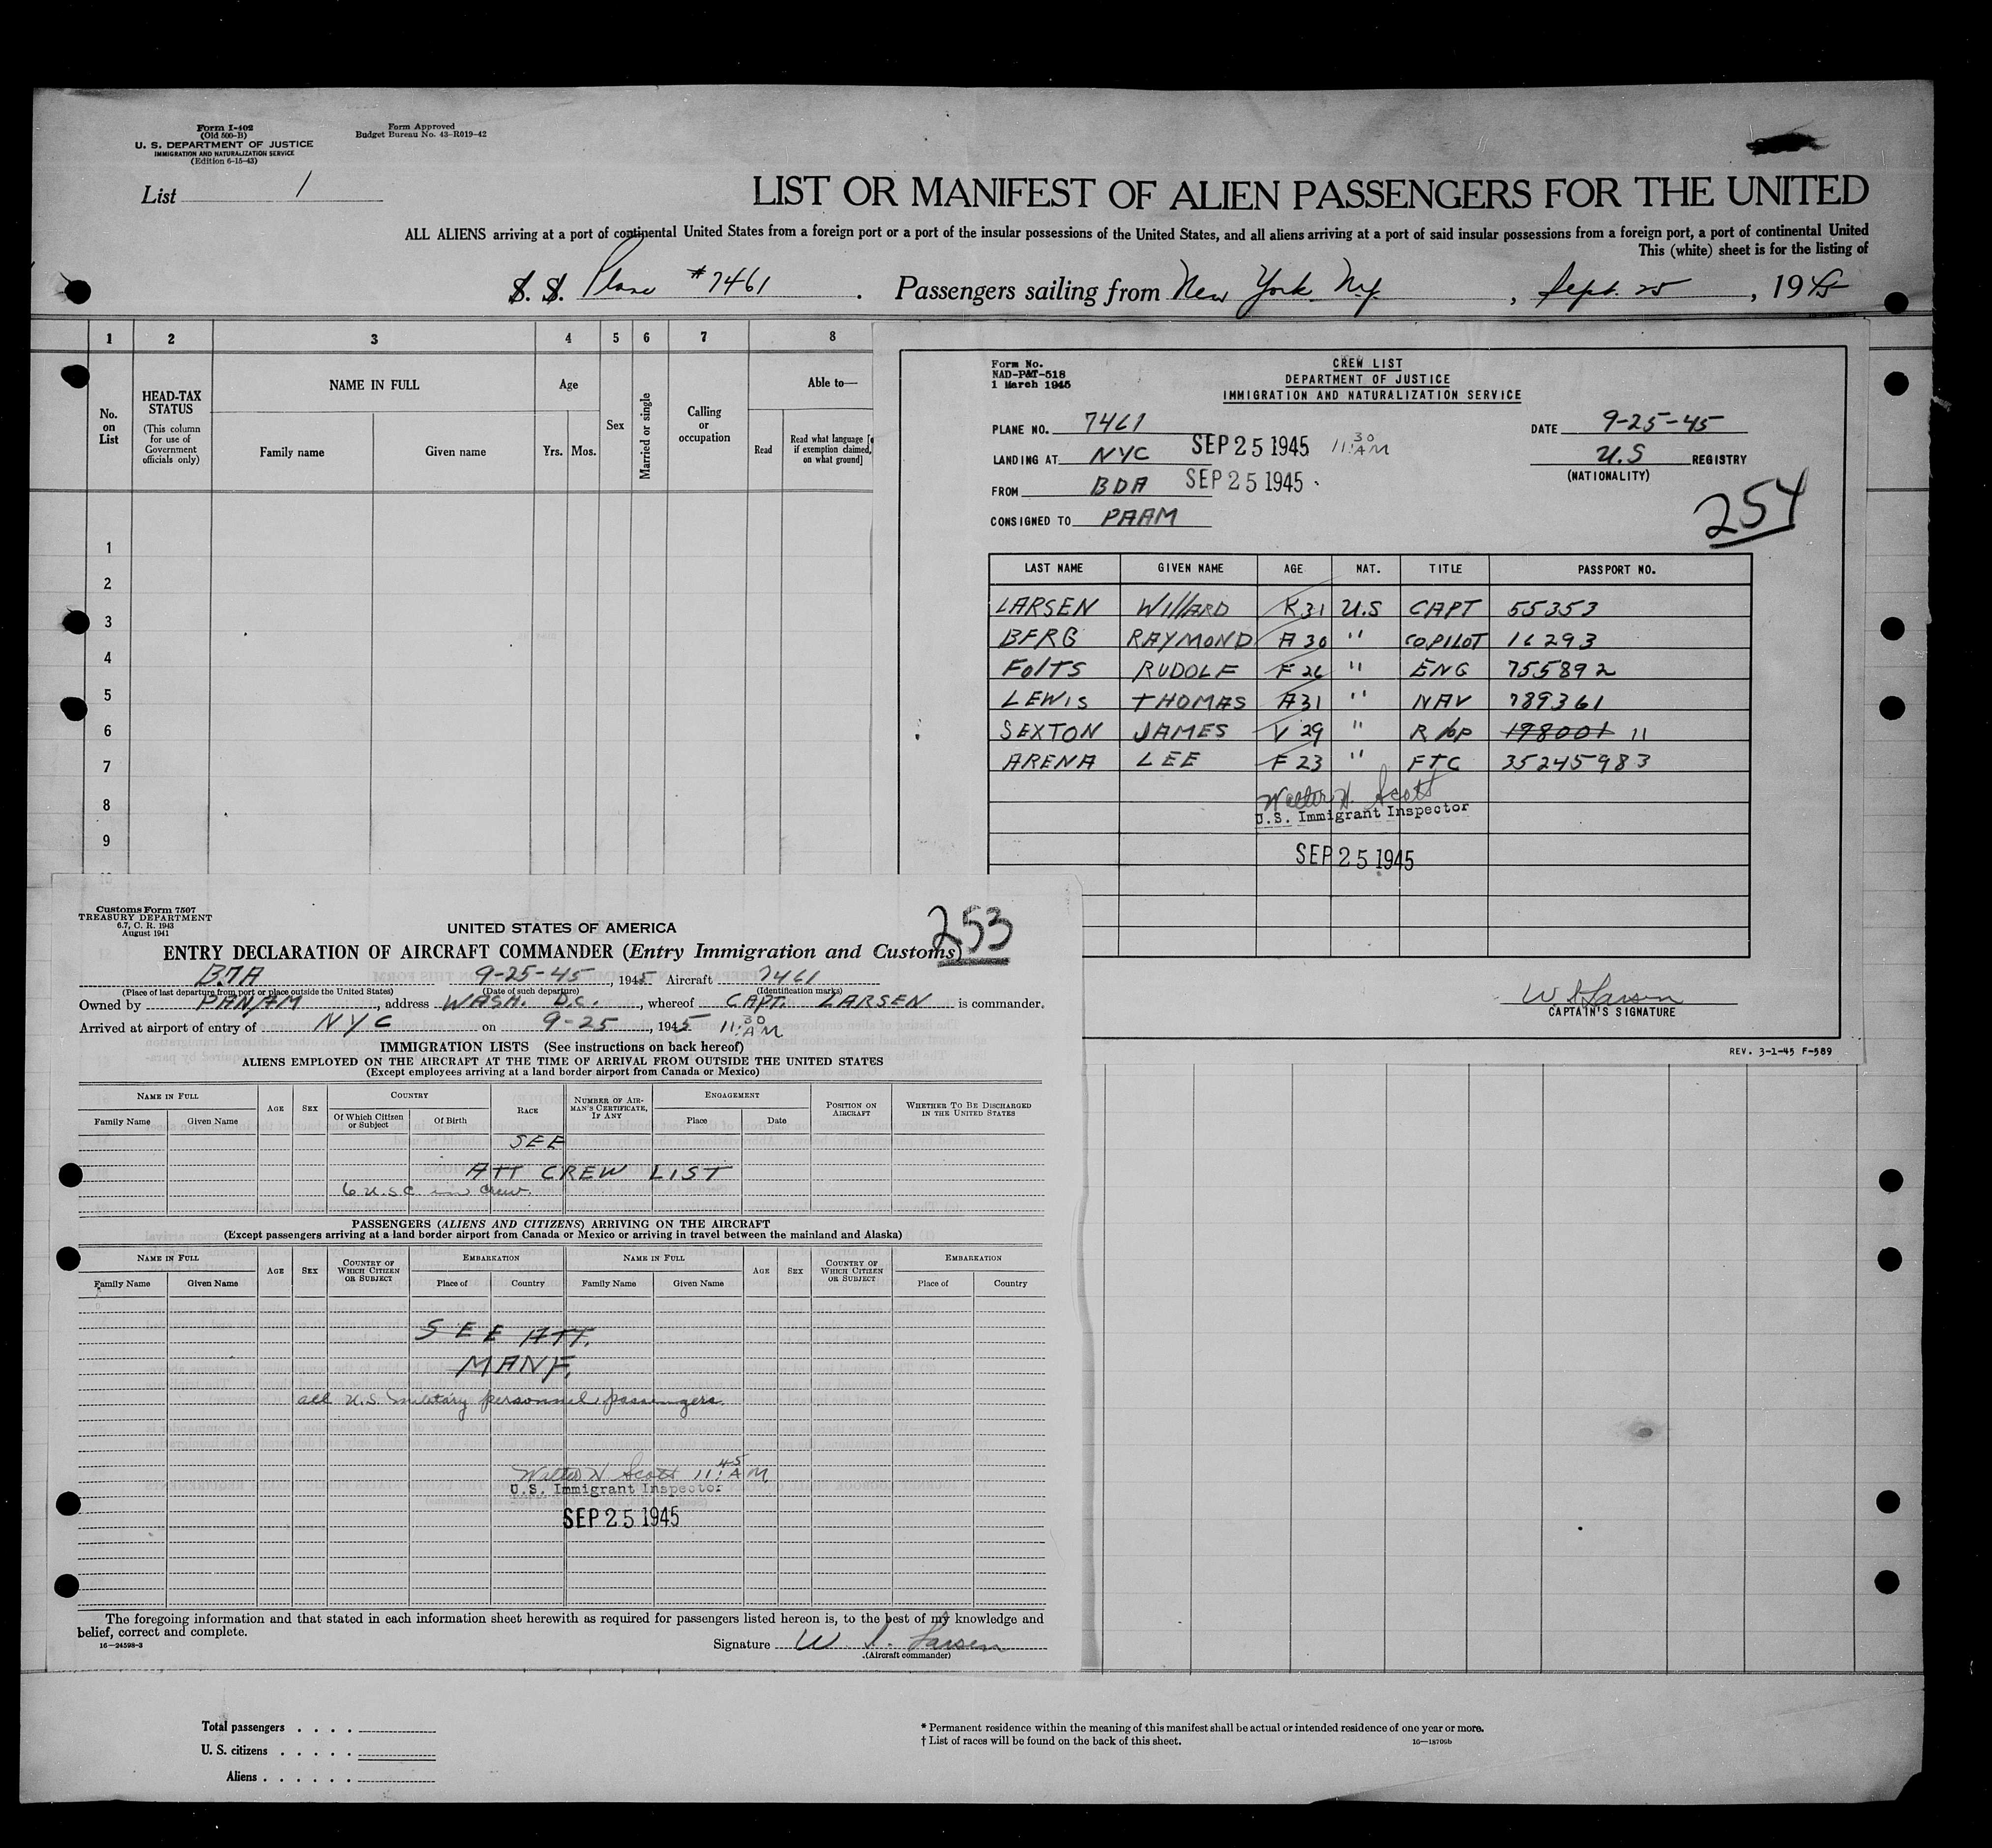 Form I-402
(Old 500-B)
U. S. DEPARTMENT OF JUSTICE
IMMIGRATION AND NATURALIZATION SERVICE
(Edition 6-15-43)
Form Approved
Budget Bureau No. 43-R019-42
List 1
LIST OR MANIFEST OF ALIEN PASSENGERS FOR THE UNITED
ALL ALIENS arriving at a port of continental United States from a foreign port or a port of the insular possessions of the United States, and all aliens arriving at a port of said insular possessions from a foreign port, a port of continental United
This (white) sheet is for the listing of
S. S. Plane #7461 . Passengers sailing from New York. N.Y. , Sept. 25 , 1945
1 2 3 4 5 6 7 8
No. on List
HEAD-TAX STATUS
(This column for use of Government officials only)
NAME IN FULL
Family name Given name
Age
Yrs. Mos.
Sex
Married or single
Calling or occupation
Able to—
Read
Read what language [
if exemption claimed,
on what ground]
1
2
3
4
5
6
7
8
9
10
Form No.
NAD-P&T-518
1 March 1945
CREW LIST
DEPARTMENT OF JUSTICE
IMMIGRATION AND NATURALIZATION SERVICE
PLANE NO. 7461
DATE 9-25-45
LANDING AT NYC SEP 25 1945 11:30 AM
U.S REGISTRY
(NATIONALITY)
FROM BDA SEP 25 1945
254
CONSIGNED TO PAAM
LAST NAME GIVEN NAME AGE NAT. TITLE PASSPORT NO.
LARSEN WIllARD K 31 U.S CAPT 55353
BERG RAYMOND A 30 " COPILOT 16293
FOlTS RUDOLF F 26 " ENG 755892
LEWIS THOMAS A 31 " NAV 789361
SEXTON JAMES V 29 " R/op 198001 11
ARENA LEE F 23 " FTC 35245983
Walter H. Scott
U.S. Immigrant Inspector
SEP 25 1945
W. S. Larsen
CAPTAIN'S SIGNATURE
REV. 3-1-45 F-589
Customs Form 7507
TREASURY DEPARTMENT
6.7, C. R. 1943
August 1941
253
UNITED STATES OF AMERICA
ENTRY DECLARATION OF AIRCRAFT COMMANDER (Entry Immigration and Customs)
9-25-45 , 1945 Aircraft 7461
(Place of last departure from port or place outside the United States) (Date of such departure) (Identification marks)
Owned by PANAM , address WASH. D.C. , whereof CAPT. LARSEN is commander.
Arrived at airport of entry of NYC on 9-25 , 1945 11:30 AM
IMMIGRATION LISTS (See instructions on back hereof)
ALIENS EMPLOYED ON THE AIRCRAFT AT THE TIME OF ARRIVAL FROM OUTSIDE THE UNITED STATES
(Except employees arriving at a land border airport from Canada or Mexico)
NAME IN FULL AGE SEX COUNTRY RACE NUMBER OF AIRMAN'S CERTIFICATE, IF ANY ENGAGEMENT POSITION ON AIRCRAFT WHETHER TO BE DISCHARGED IN THE UNITED STATES
Family Name Given Name Of Which Citizen or Subject Of Birth Place Date
SEE
ATT CREW LIST
6 U.S.C. in crew.
PASSENGERS (ALIENS AND CITIZENS) ARRIVING ON THE AIRCRAFT
(Except passengers arriving at a land border airport from Canada or Mexico or arriving in travel between the mainland and Alaska)
NAME IN FULL AGE SEX COUNTRY OF WHICH CITIZEN OR SUBJECT EMBARKATION NAME IN FULL AGE SEX COUNTRY OF WHICH CITIZEN OR SUBJECT EMBARKATION
Family Name Given Name Place of Country Family Name Given Name Place of Country
SEE ATT.
MANF.
all U.S. military personnel passengers.
Walter H Scott 11:45 AM
U.S. Immigrant Inspector
SEP 25 1945
The foregoing information and that stated in each information sheet herewith as required for passengers listed hereon is, to the best of my knowledge and
belief, correct and complete.
16—24598-3
Signature W. S. Larsen
(Aircraft commander)
Total passengers . . . .
U. S. citizens . . . . .
Aliens . . . . . .
* Permanent residence within the meaning of this manifest shall be actual or intended residence of one year or more.
† List of races will be found on the back of this sheet.
16—18709b